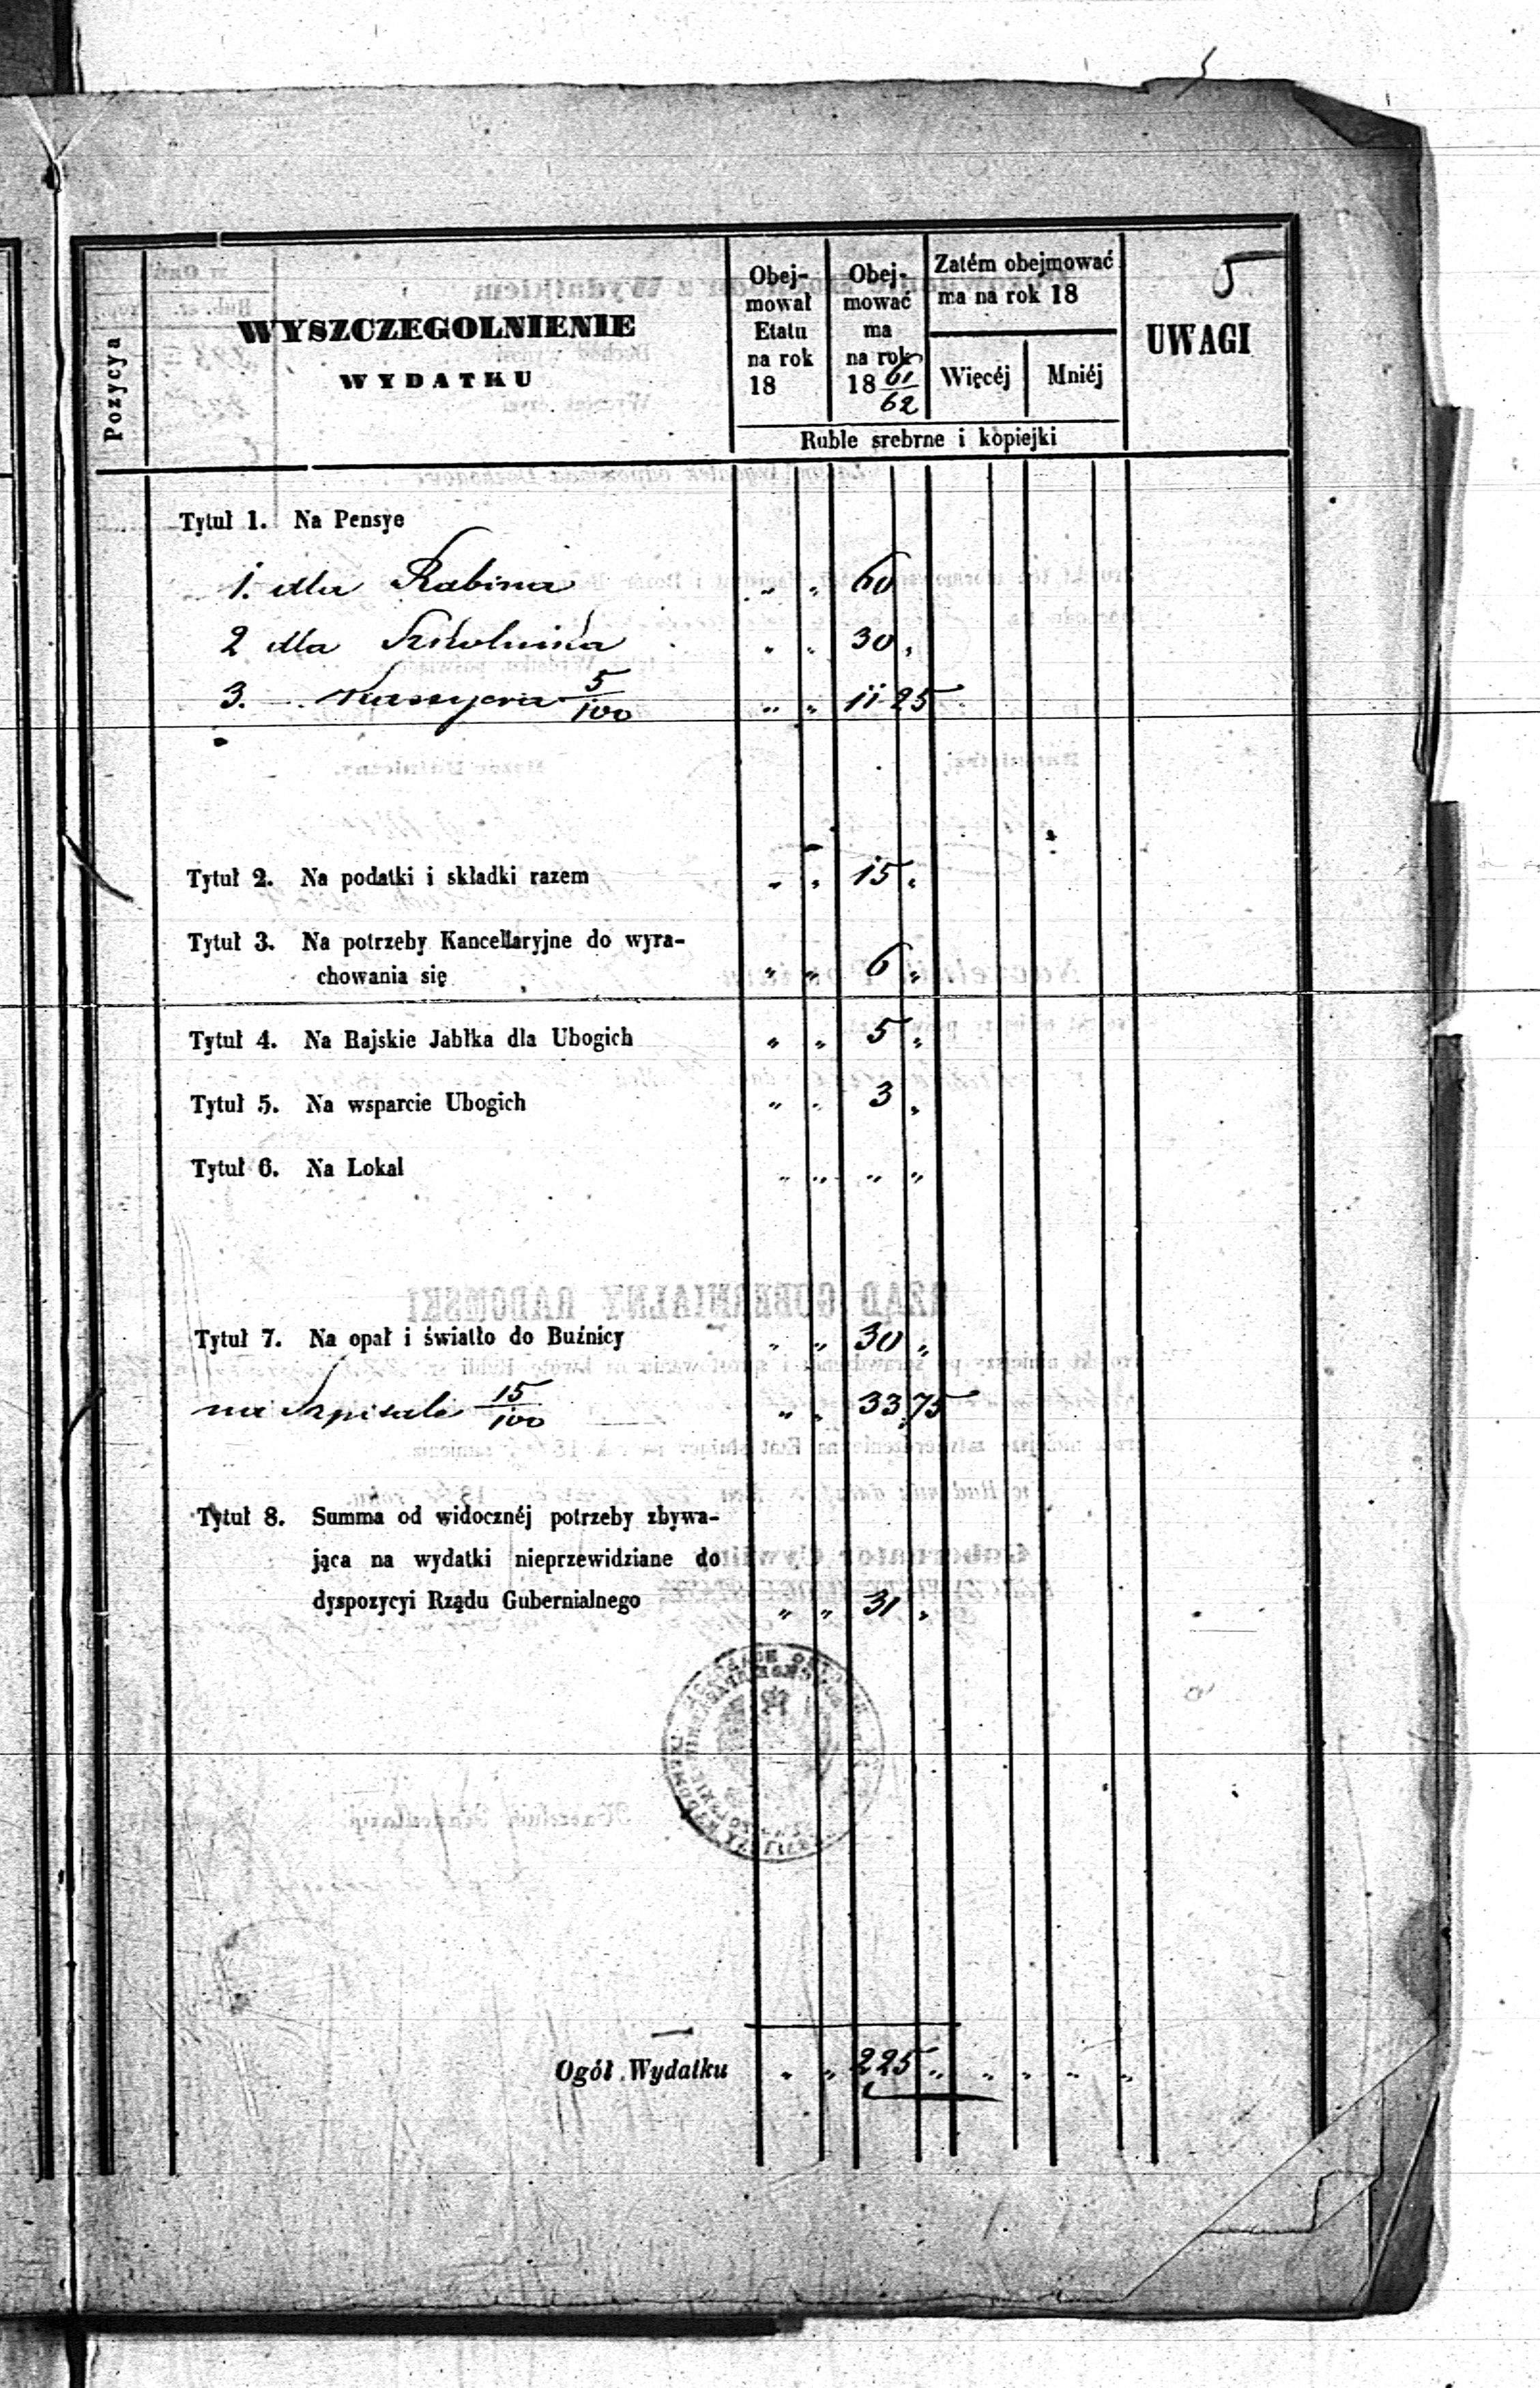 5
Pozycya
WYSZCZEGOLNIENIE
WYDATKU
Obej-
mował
Etatu
na rok
18
Obej-
mować
ma
na rok
18 61/62
Zatém obejmować
ma na rok 18
Więcéj
Mniéj
Ruble srebrne i kopiejki
UWAGI
Tytuł 1. Na Pensye
1. dla Rabina " " 60
2 dla Szkolnika " " 30 "
3. Kassyera 5/100 " " 11 25
Tytuł 2. Na podatki i składki razem " " 15 "
Tytuł 3. Na potrzeby Kancellaryjne do wyra-
chowania się " " 6 "
Tytuł 4. Na Rajskie Jabłka dla Ubogich " " 5 "
Tytuł 5. Na wsparcie Ubogich " " 3 "
Tytuł 6. Na Lokal " " " "
Tytuł 7. Na opał i światło do Buźnicy " " 30 "
na Szpitale 15/100 " " 33 75
Tytuł 8. Summa od widocznéj potrzeby zbywa-
jąca na wydatki nieprzewidziane do
dyspozycyi Rządu Gubernialnego " " 31 "
Ogół Wydatku " " 225 " " " " "